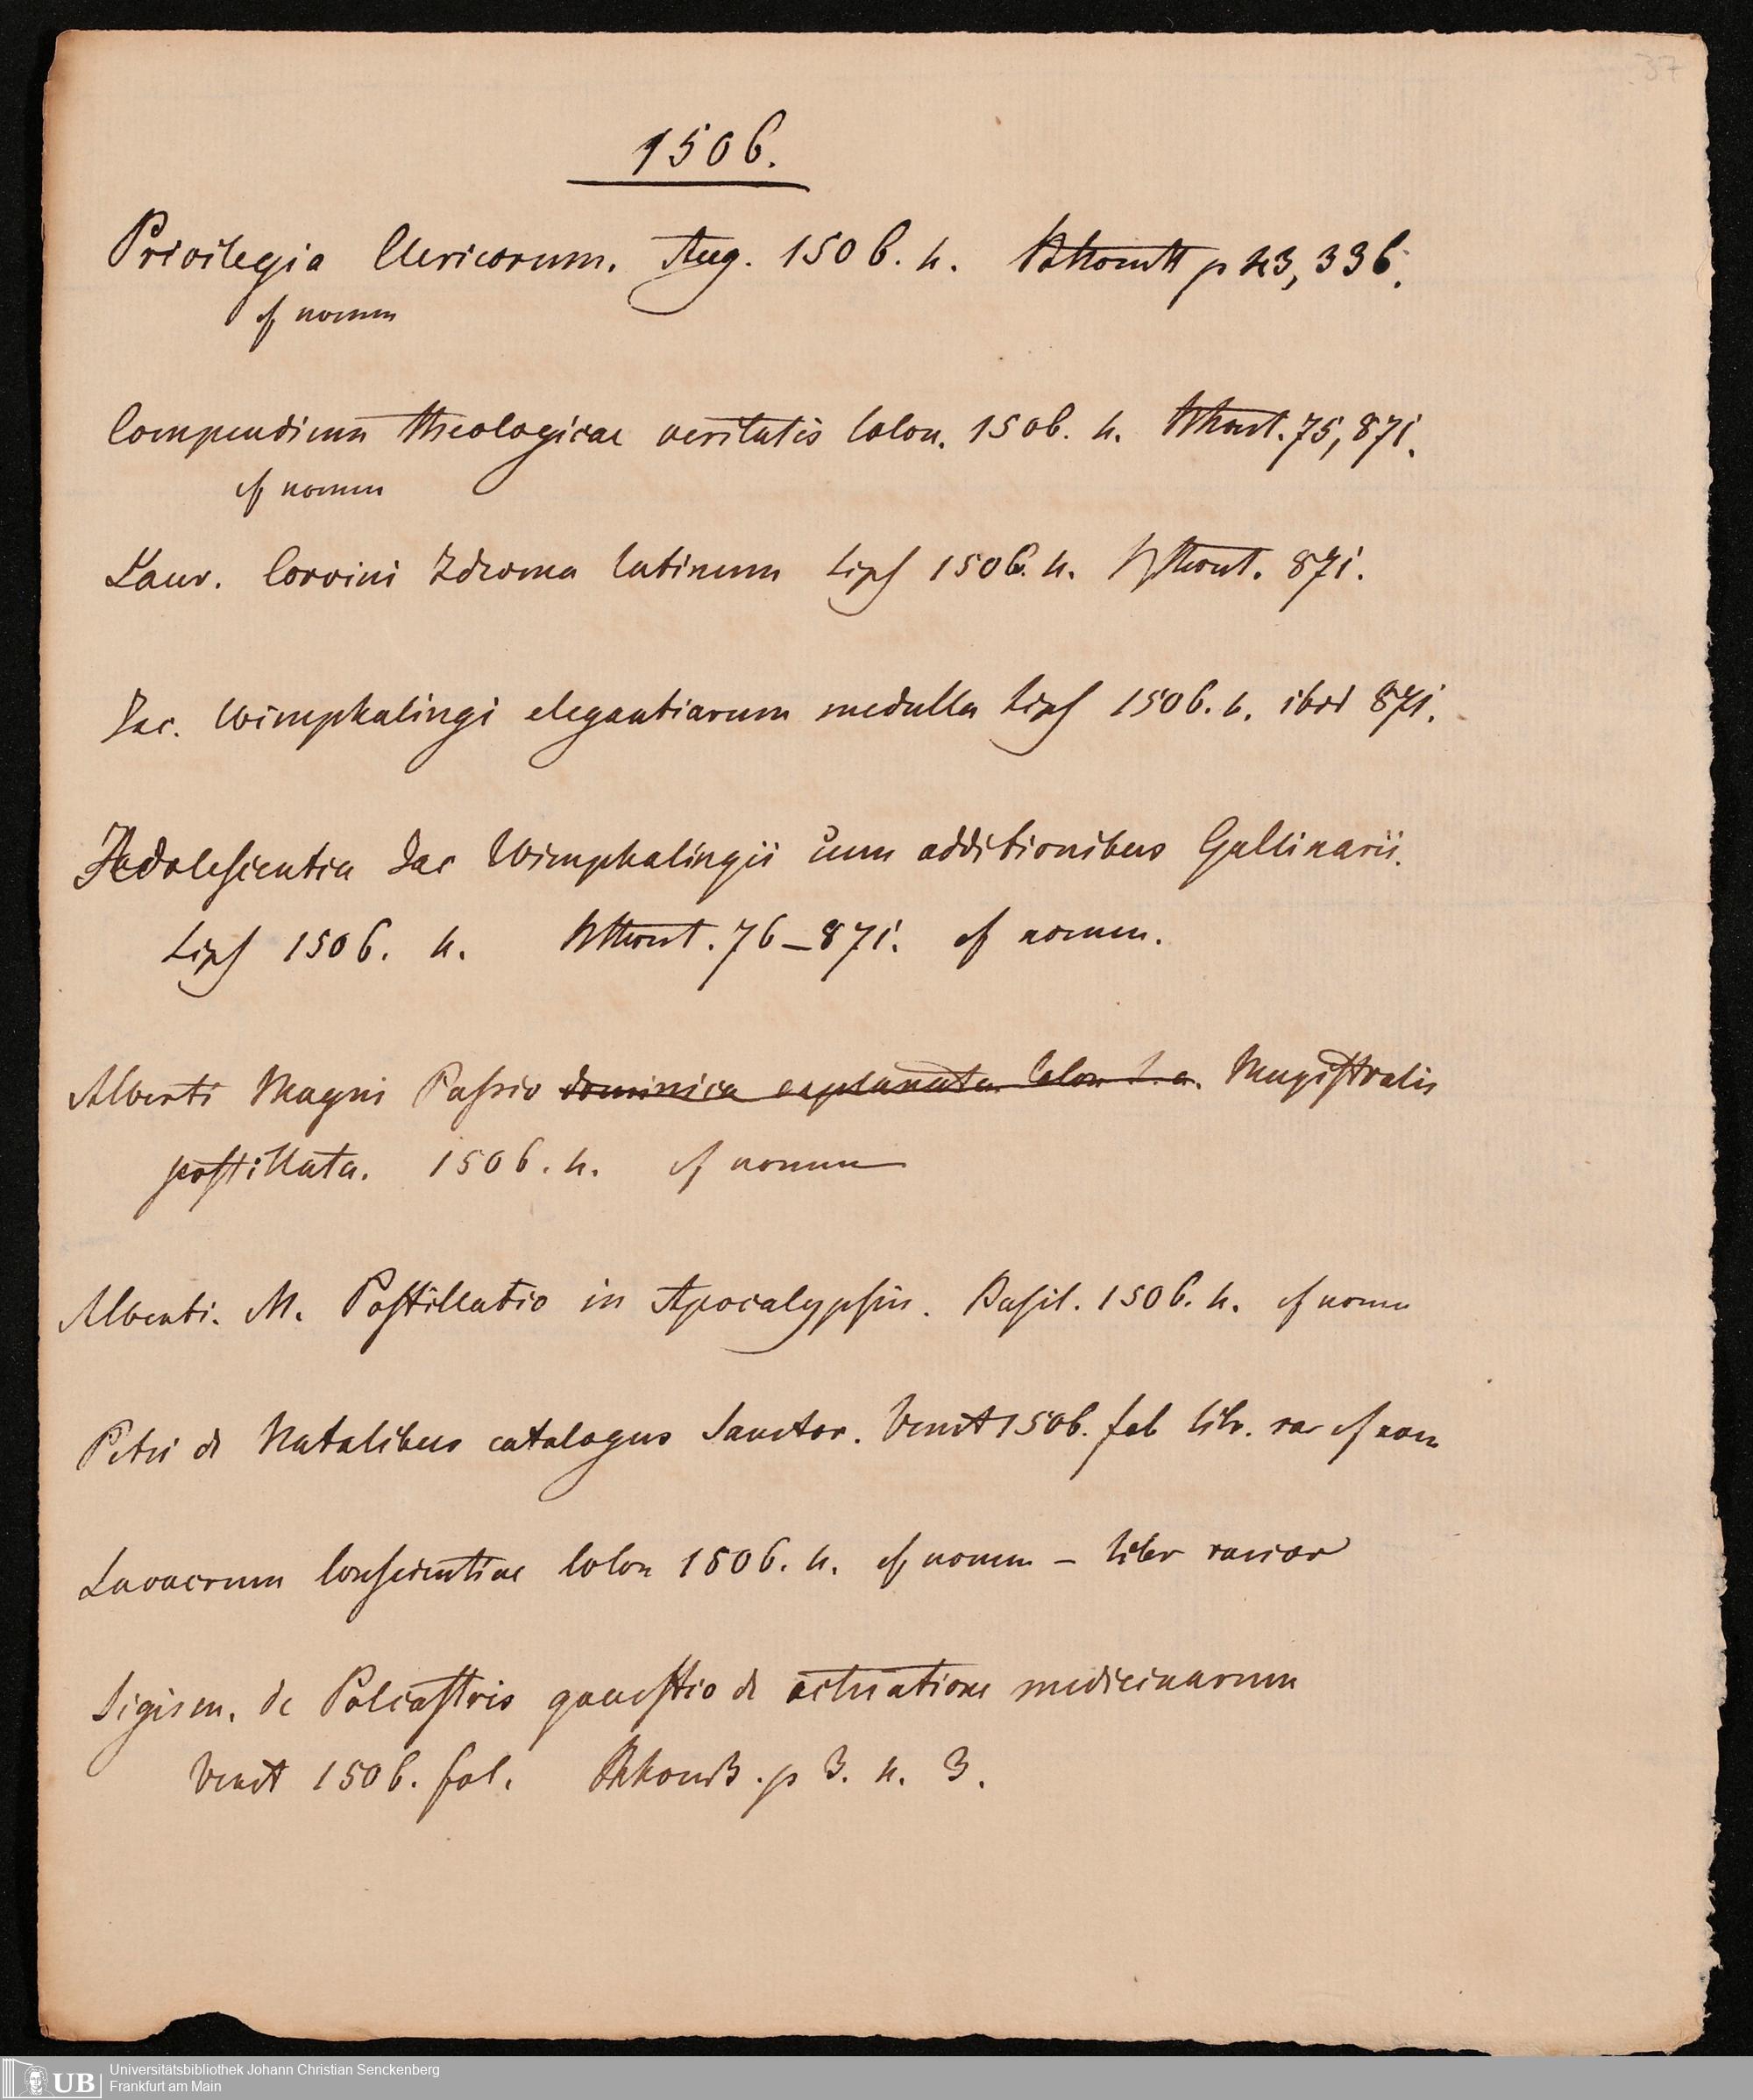 37
1506.
Privilegia Clericorum. Aug. 1506. 4. p 43, 336.
cf nomm
Compendium theologicae veritatis Colon. 1506. 4. 75, 871.
cf nomm
Laur. Corvini Idioma latinum Lips 1506. 4. 871.
Jac. Wimphalingi elegantiarum medulla Lips 1506. 4. ibid 871.
Adolescentia Jac Wimphalingii cum additionibus Gallinarii.
Lips 1506. 4. 76–871. cf nomm.
Alberti Magni Passio dominica explanata Colon s. a. Magistralis
postillata. 1506. 4. cf nomm
Alberti. M. Postillatio in Apocalypsin. Basil. 1506. 4. cf nomm
Petri de Natalibus catalogus Sanctor. Venet 1506. fol libr. rar cf nom
Lavacrum Conscientiae Colon 1506. 4. cf nomm – liber rarior
Sigism. de Polcastris quaestio de actuatione medicinarum
Venet 1506. fol. p 3. n. 3.
UB Universitätsbibliothek Johann Christian Senckenberg
Frankfurt am Main